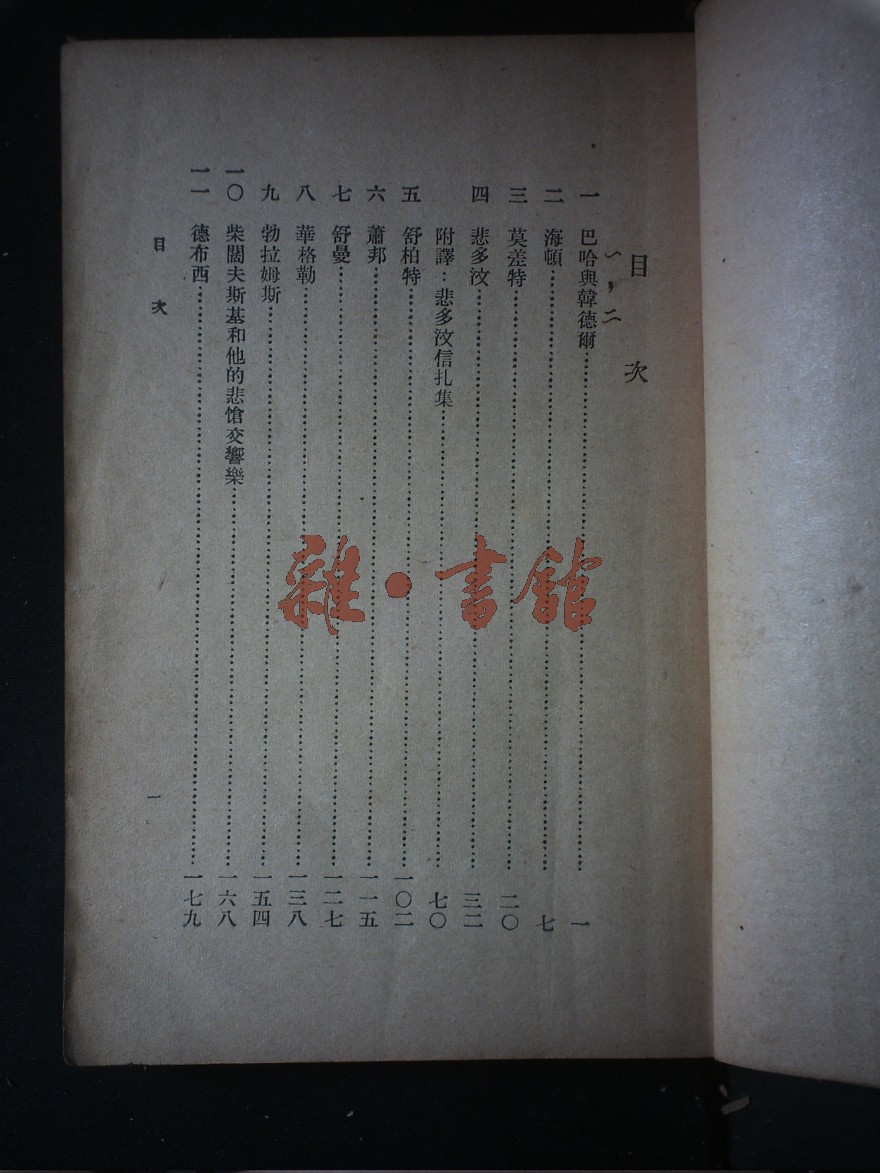 目次
一 巴哈與韓德爾……一
二 海頓……七
三 莫差特……二〇
四 悲多汶……三二
附譯：悲多汶信扎集……七〇
五 舒柏特……一〇二
六 蕭邦……一一五
七 舒曼……一二七
八 華格勒……一三八
九 勃拉姆斯……一五四
一〇 柴闊夫斯基和他的悲愴交響樂……一六八
一一 德布西……一七九
目次 一
雜·書館